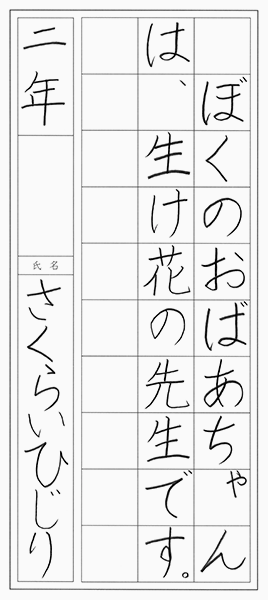 ぼくのおばあちゃん
は、生け花の先生です。
二年
氏名
さくらいひじり